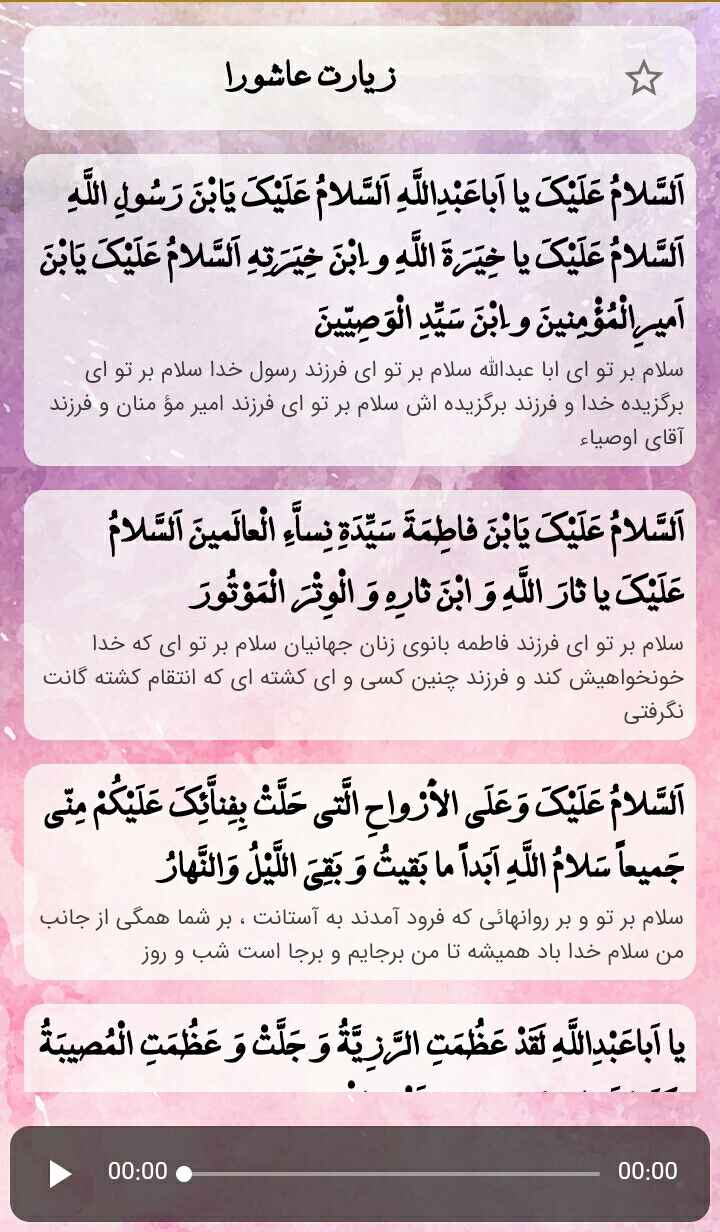 زیارت عاشورا
اَلسَّلامُ عَلَیْکَ یا اَباعَبْدِاللَّهِ اَلسَّلامُ عَلَیْکَ یَابْنَ رَسُولِ اللَّهِ
اَلسَّلامُ عَلَیْکَ یا خِیَرَةَ اللَّهِ و ابْنَ خِیَرَتِهِ اَلسَّلامُ عَلَیْکَ یَابْنَ
اَمیرِالْمُؤْمِنینَ و ابْنَ سَیِّدِ الْوَصِیّینَ
سلام بر تو ای ابا عبدالله سلام بر تو ای فرزند رسول خدا سلام بر تو ای
برگزیده خدا و فرزند برگزیده اش سلام بر تو ای فرزند امیر مؤ منان و فرزند
آقای اوصیاء
اَلسَّلامُ عَلَیْکَ یَابْنَ فاطِمَةَ سَیِّدَةِ نِساَّءِ الْعالَمینَ اَلسَّلامُ
عَلَیْکَ یا ثارَ اللَّهِ وَ ابْنَ ثارِهِ وَ الْوِتْرَ الْمَوْتُورَ
سلام بر تو ای فرزند فاطمه بانوی زنان جهانیان سلام بر تو ای که خدا
خونخواهیش کند و فرزند چنین کسی و ای کشته ای که انتقام کشته گانت
نگرفتی
اَلسَّلامُ عَلَیْکَ وَعَلَی الاَْرْواحِ الَّتی حَلَّتْ بِفِناَّئِکَ عَلَیْکُمْ مِنّی
جَمیعاً سَلامُ اللَّهِ اَبَداً ما بَقیتُ وَ بَقِیَ اللَّیْلُ وَالنَّهارُ
سلام بر تو و بر روانهائی که فرود آمدند به آستانت ، بر شما همگی از جانب
من سلام خدا باد همیشه تا من برجایم و برجا است شب و روز
یا اَباعَبْدِاللَّهِ لَقَدْ عَظُمَتِ الرَّزِیَّةُ وَ جَلَّتْ وَ عَظُمَتِ الْمُصیبَةُ
00:00 00:00